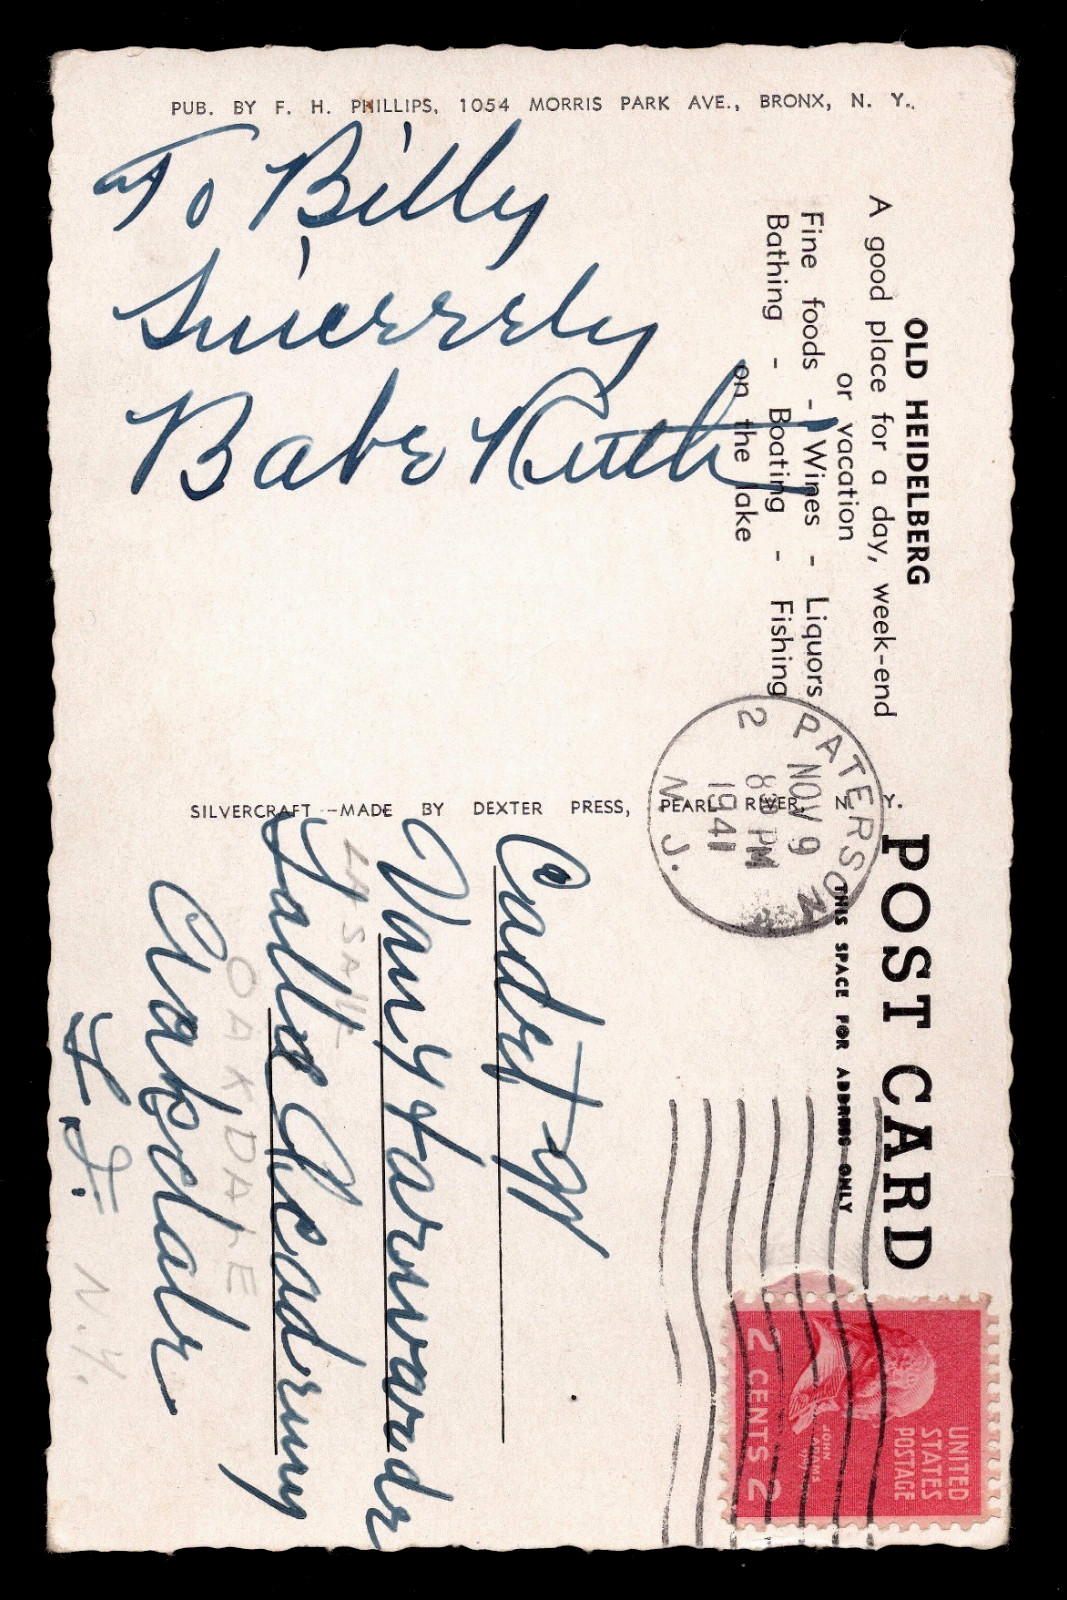 PUB. BY F. H. PHILLIPS, 1054 MORRIS PARK AVE., BRONX, N. Y.
To Billy
Sincerely
Babe Ruth
OLD HEIDELBERG
A good place for a day, week-end
or vacation
Fine foods - Wines - Liquors
Bathing - Boating - Fishing
on the lake
SILVERCRAFT - MADE BY DEXTER PRESS, PEARL RIVER, N. Y.
PATERSON
2
NOV 9
PM
1941
N. J.
POST CARD
THIS SPACE FOR ADDRESS ONLY
UNITED
STATES
POSTAGE
JOHN
ADAMS
2 CENTS 2
Cadet W
Van
LA SALLE
Salle Academy
OAKDALE
Oakdale
L. I.
N.Y.